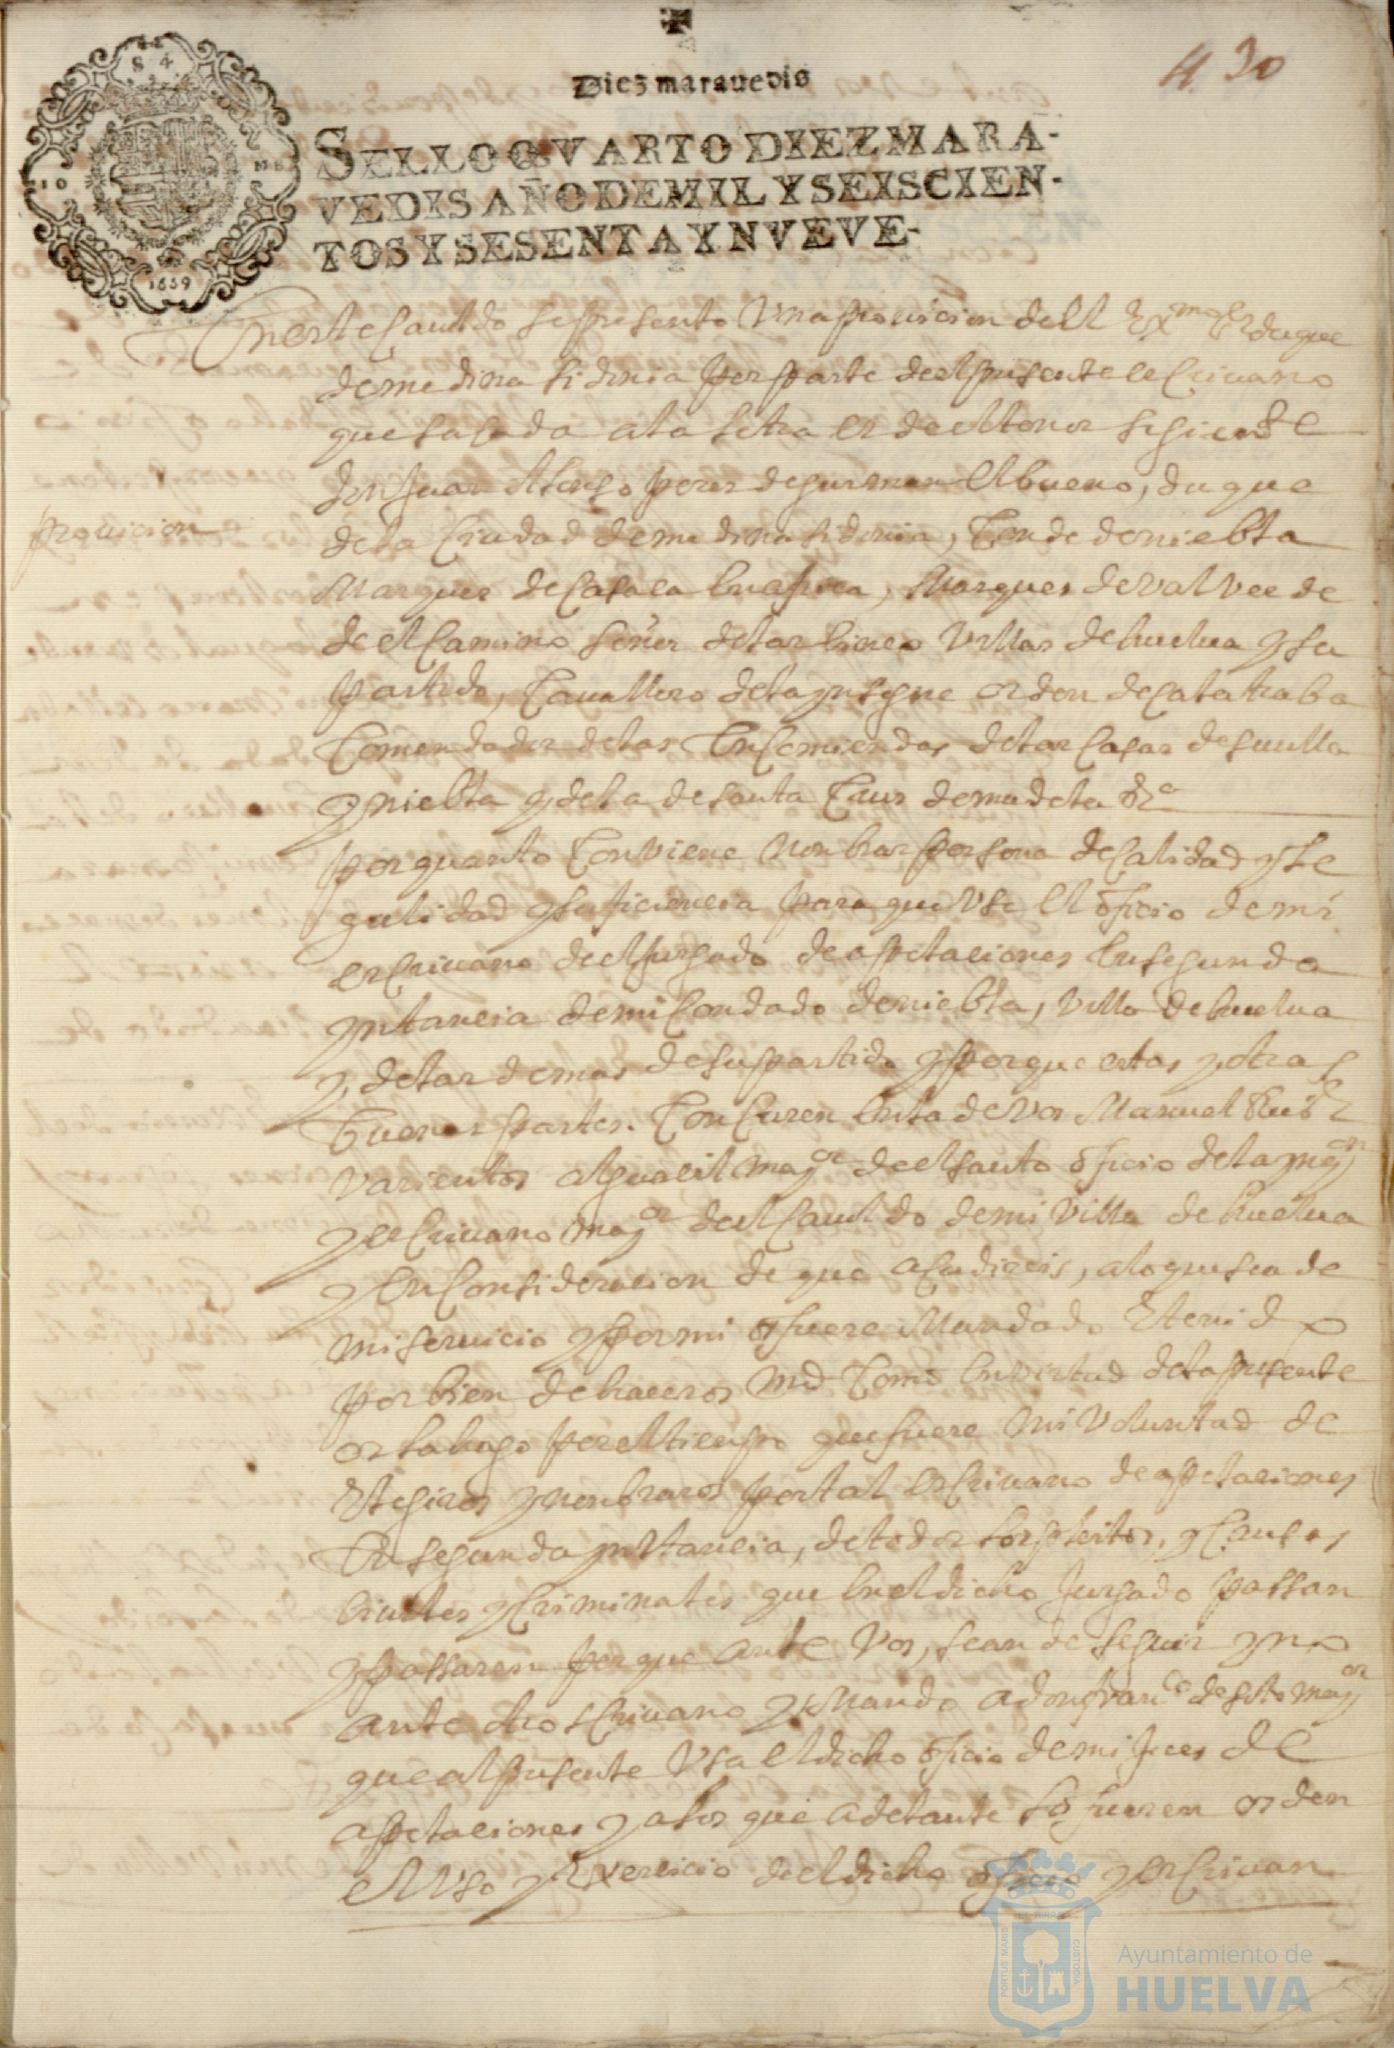 Diez marauedis
4. 30
S 4
10 Ms
1669
SELLO QVARTO DIEZ MARA-
VEDIS AÑO DE MIL Y SEISCIEN-
TOS Y SESENTA Y NVEVE-
En este Cauildo se presento Vna prouicion dell Exmo Sr duque
de medina sidonia por parte de el presente escriuano
que sacada a la letra es de el tenor sigiente
prouicion
don Juan Alonso peres de gusman el bueno, duque
de la Ciudad de medina sidonia, Conde de niebla
Marques de Casasa en africa, Marques de Valverde
de el Camino señor de las cinco Villas de huelua y su
partido, Cauallero de la ynsigne orden de Calatraba
Comendador de las Encomiendas de las Casas de seuilla
y niebla y de la de santa Crus de mudela &a
por quanto Conviene nonbrar persona de Calidad y le
galidad y suficiencia para que Vse el oficio de mi
escriuano de el Jusgado de apelaciones en segunda
yntancia de mi Condado de niebla, Villa de huelua
y, de las demas de su partido y porque estas y otras
buenas partes. Concuren en la de Vos Manuel Ruis
varientos alguacil mayor de el santo oficio de la ynqon
y escriuano mayor de el Cauildo de mi Villa de huelua
y en Consideracion de que acudireis, a lo que sea de
mi seruicio y por mi os fuere Mandado E tenido
por bien de haceros md Como en virtud de la presente
os la hago por el tienpo que fuere mi Voluntad de
Elegiros y nonbraros por tal escriuano de apelaciones
En segunda yntancia, de todos los pleitos, y Causas
ciuiles y Criminales que en el dicho Jusgado passan
y passaren porque ante Vos, se an de seguir y no
ante otro escriuano y Mando a don franco de soto mayor
que al presente Vsa el dicho oficio de mi Jues de
apelaciones y a los que adelante lo fueren os den
el Vso y Exercicio de el dicho oficio y escriuan
PORTUS MARIS
ET TERRAE
CUSTODIA
Ayuntamiento de
HUELVA